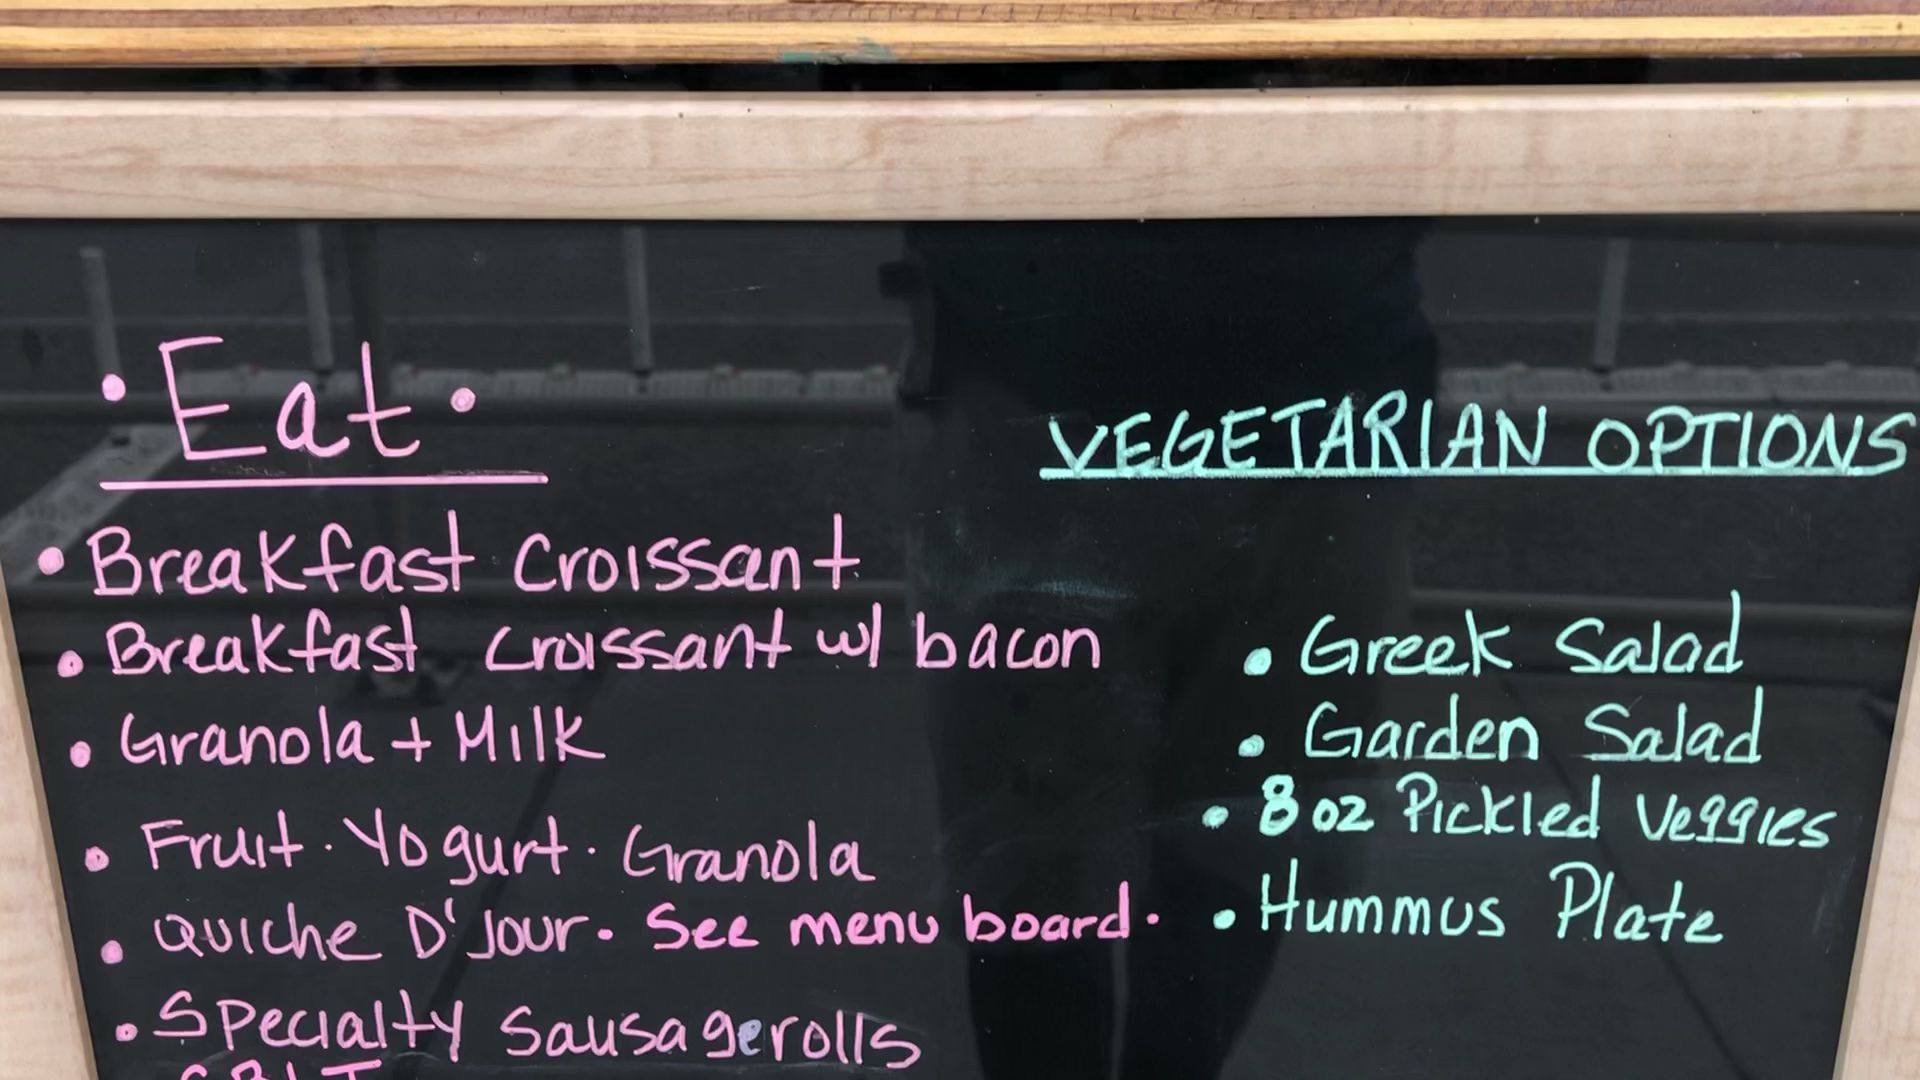 • Eat •
• Breakfast Croissant
• Breakfast croissant w/ bacon
• Granola + Milk
• Fruit · Yogurt · Granola
• Quiche D'Jour • See menu board •
• Specialty Sausage rolls
VEGETARIAN OPTIONS
• Greek Salad
• Garden Salad
• 8 oz Pickled Veggies
• Hummus Plate